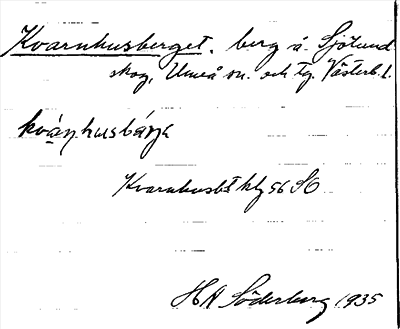 Kvarnhusberget. berg å Sjölund
skog, Umeå sn. och tg. Västerb. l.
kvànhusbárje
Kvarnhusbt ktg 56 SO
H A Söderberg 1935